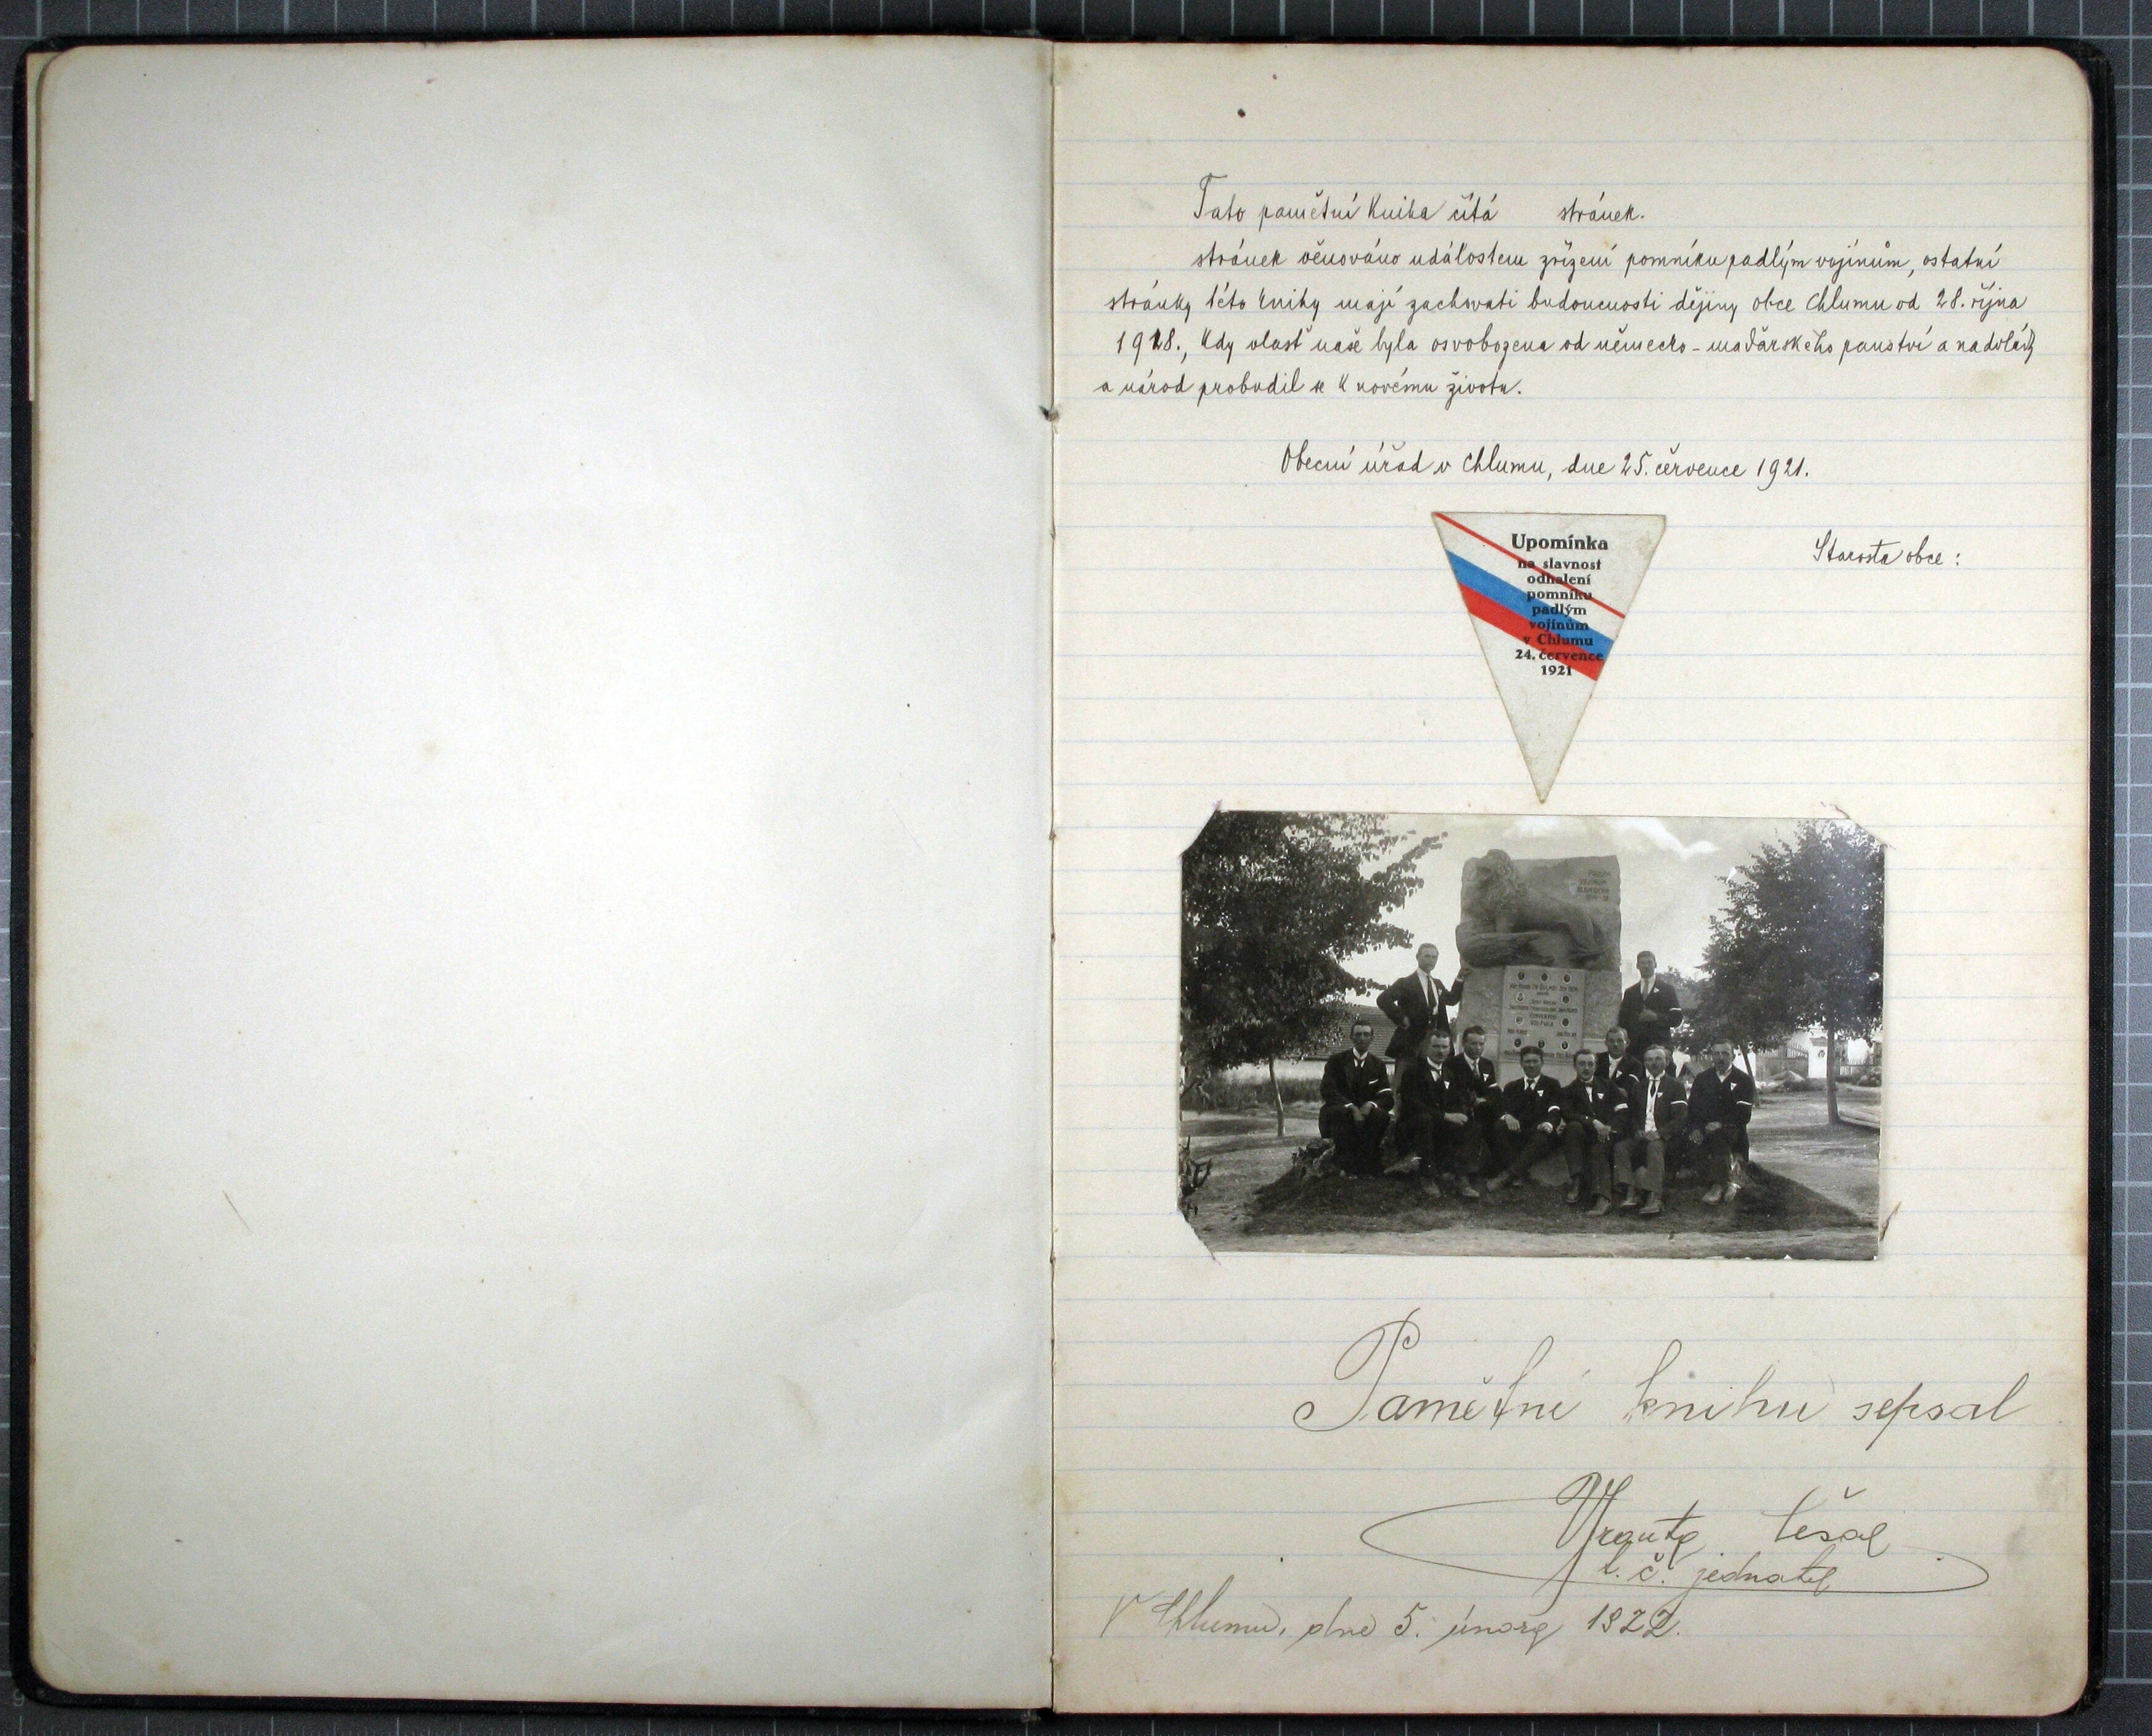 Tato pamětní kniha čítá stránek.
stránek věnováno událostem zřízení pomníku padlým vojínům, ostatní
stránky této knihy mají zachovati budoucnosti dějiny obce Chlumu od 28. října
1918., kdy vlasť naše byla osvobozena od německo-maďarského panství a nadvlády
a národ probudil se k novému životu.
Obecní úřad v Chlumu, dne 25. července 1921.
Upomínka
na slavnost
odhalení
pomníku
padlým
vojínům
v Chlumu
24. července
1921
Starosta obce:
Pamětní knihu sepsal
Tešař
t. č. jednatel
V Chlumu, dne 5. února 1922.